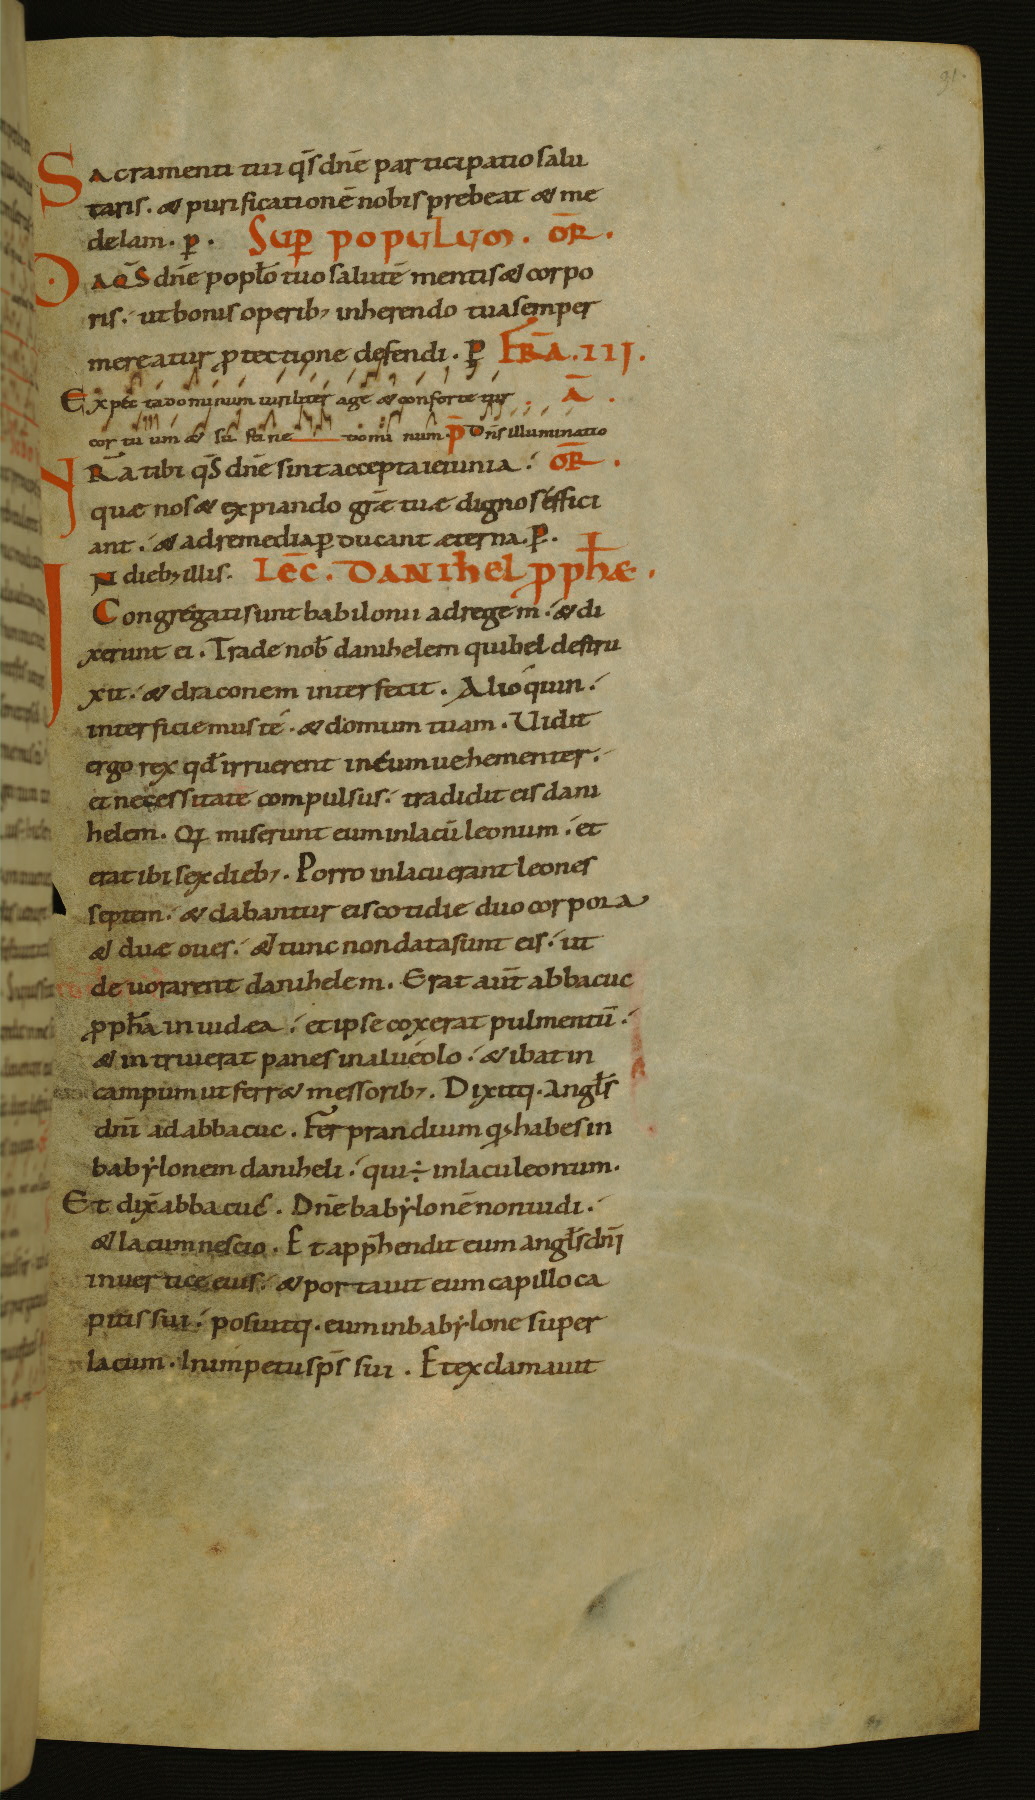 91.
Sacramenti tui q̄s dn̄e participatio salu
taris. & purificationē nobis prebeat & me
delam. p̱. Suꝑ populum. OR̄.
DA Q̄S dn̄e popl̄o tuo salutē mentis & corpo
ris. ut bonis operib; inherendo tua semper
mereatur ꝓtectione defendi. P̱ FR̄A. III.
Expecta dominum uiriliter age & confortetur Ā.
cor tuum & sustine dominum. P̄ Dn̄s illuminatio
NR̄a tibi q̄s dn̄e sint accepta ieiunia. OR̄.
quæ nos & expiando gr̄æ tuæ dignos effici
ant. & ad remedia ꝑducant æterna. P̱.
IN dieb; illis. LEC̄. DANIHEL ꝓPHÆ.
Congregati sunt babilonii ad regem. & di
xerunt ei. Trade nob̄ danihelem qui bel destru
xit. & draconem interfecit. Alioquin.
interficiemus te. & domum tuam. Uidit
ergo rex qd̄ irruerent in eum uehementer.
et necessitate compulsus. tradidit eis dani
helem. Qi miserunt eum in lacū leonum. et
erat ibi sex dieb;. Porro in lacu erant leones
septem. & dabantur eis cotidie duo corpora
& duæ oues. & tunc non data sunt eis. ut
deuorarent danihelem. Erat aut̄ abbacuc
ꝓph̄a in iudæa. et ipse coxerat pulmentū.
& intriuerat panes in alueolo. & ibat in
campum ut ferr& messorib;. Dixitq. angl̄s
dn̄i ad abbacuc. Fer prandium q; habes in
babẏlonem daniheli. qui ÷ in lacu leonum.
Et dix̄ abbacuc. Dn̄e babẏlonē non uidi.
& lacum nescio. Et app̄hendit eum angl̄s dn̄i
in uertice eius. & portauit eum capillo ca
pitis sui. posuitq. eum in babẏlone super
lacum. In impetu sp̄s sui. Et exclamauit